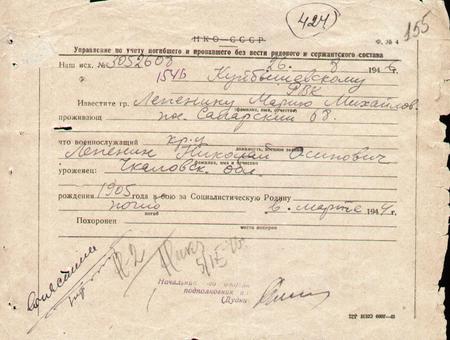 424
155
НКО—СССР
Ф. № 4
Управление по учету погибшего и пропавшего без вести рядового и сержантского состава
Наш исх. № 3052608 26. 8 194
154Б Куйбышевскому
РВК
Известите гр. Лепенину Марию Михайлов.
фамилия, имя, отчество
проживающ 68.
что военнослужащий кр-ц
должность, военное звание
Лепенин Николай Осипович
фамилия, имя и отчество
уроженец: Чкаловск. обл.
рождения 1905 года в бою за Социалистическую Родину
погиб в марте 1944г.
погиб
Похоронен
место похорон
Н-2
Начальник отдела
подполковник